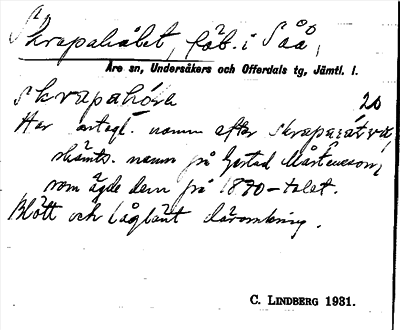 Skrapahålet, fäb. i Såå,
Åre sn, Undersåkers och Offerdals tg, Jämtl. l.
skrapahóɽe 20
Har antagl. namn efter skrapa
skämts. namn på Gertrud Mårtensson,
som ägde den på 1870-talet.
Blött och låglänt däromkring.
C. LINDBERG 1931.